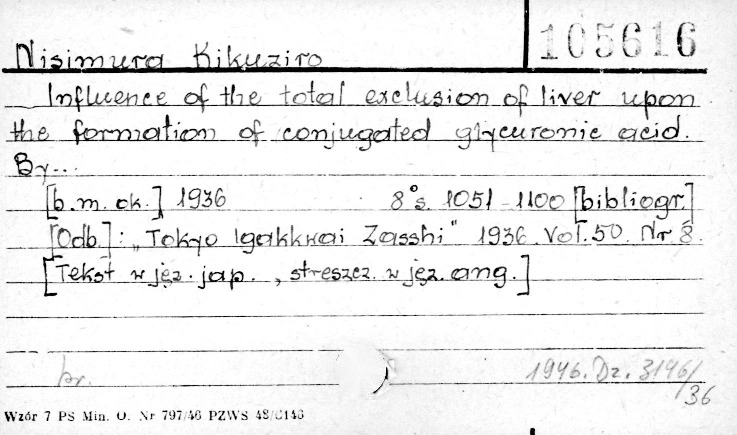 105616
Nisimura Kikuziro
Influence of the total exclusion of liver upon
the formation of conjugated glycuronic acid.
By...
[b.m. ok.] 1936 8° s. 1051-1100 [bibliogr.]
[Odb.]: „Tokyo Igakkwai Zasshi" 1936. Vol. 50. Nr 8.
[Tekst w jęz. jap., streszcz. w jęz. ang.]
br. 1946. Dz. 3146/36
Wzór 7 PS Min. O. Nr 797/46 PZWS 48/C146